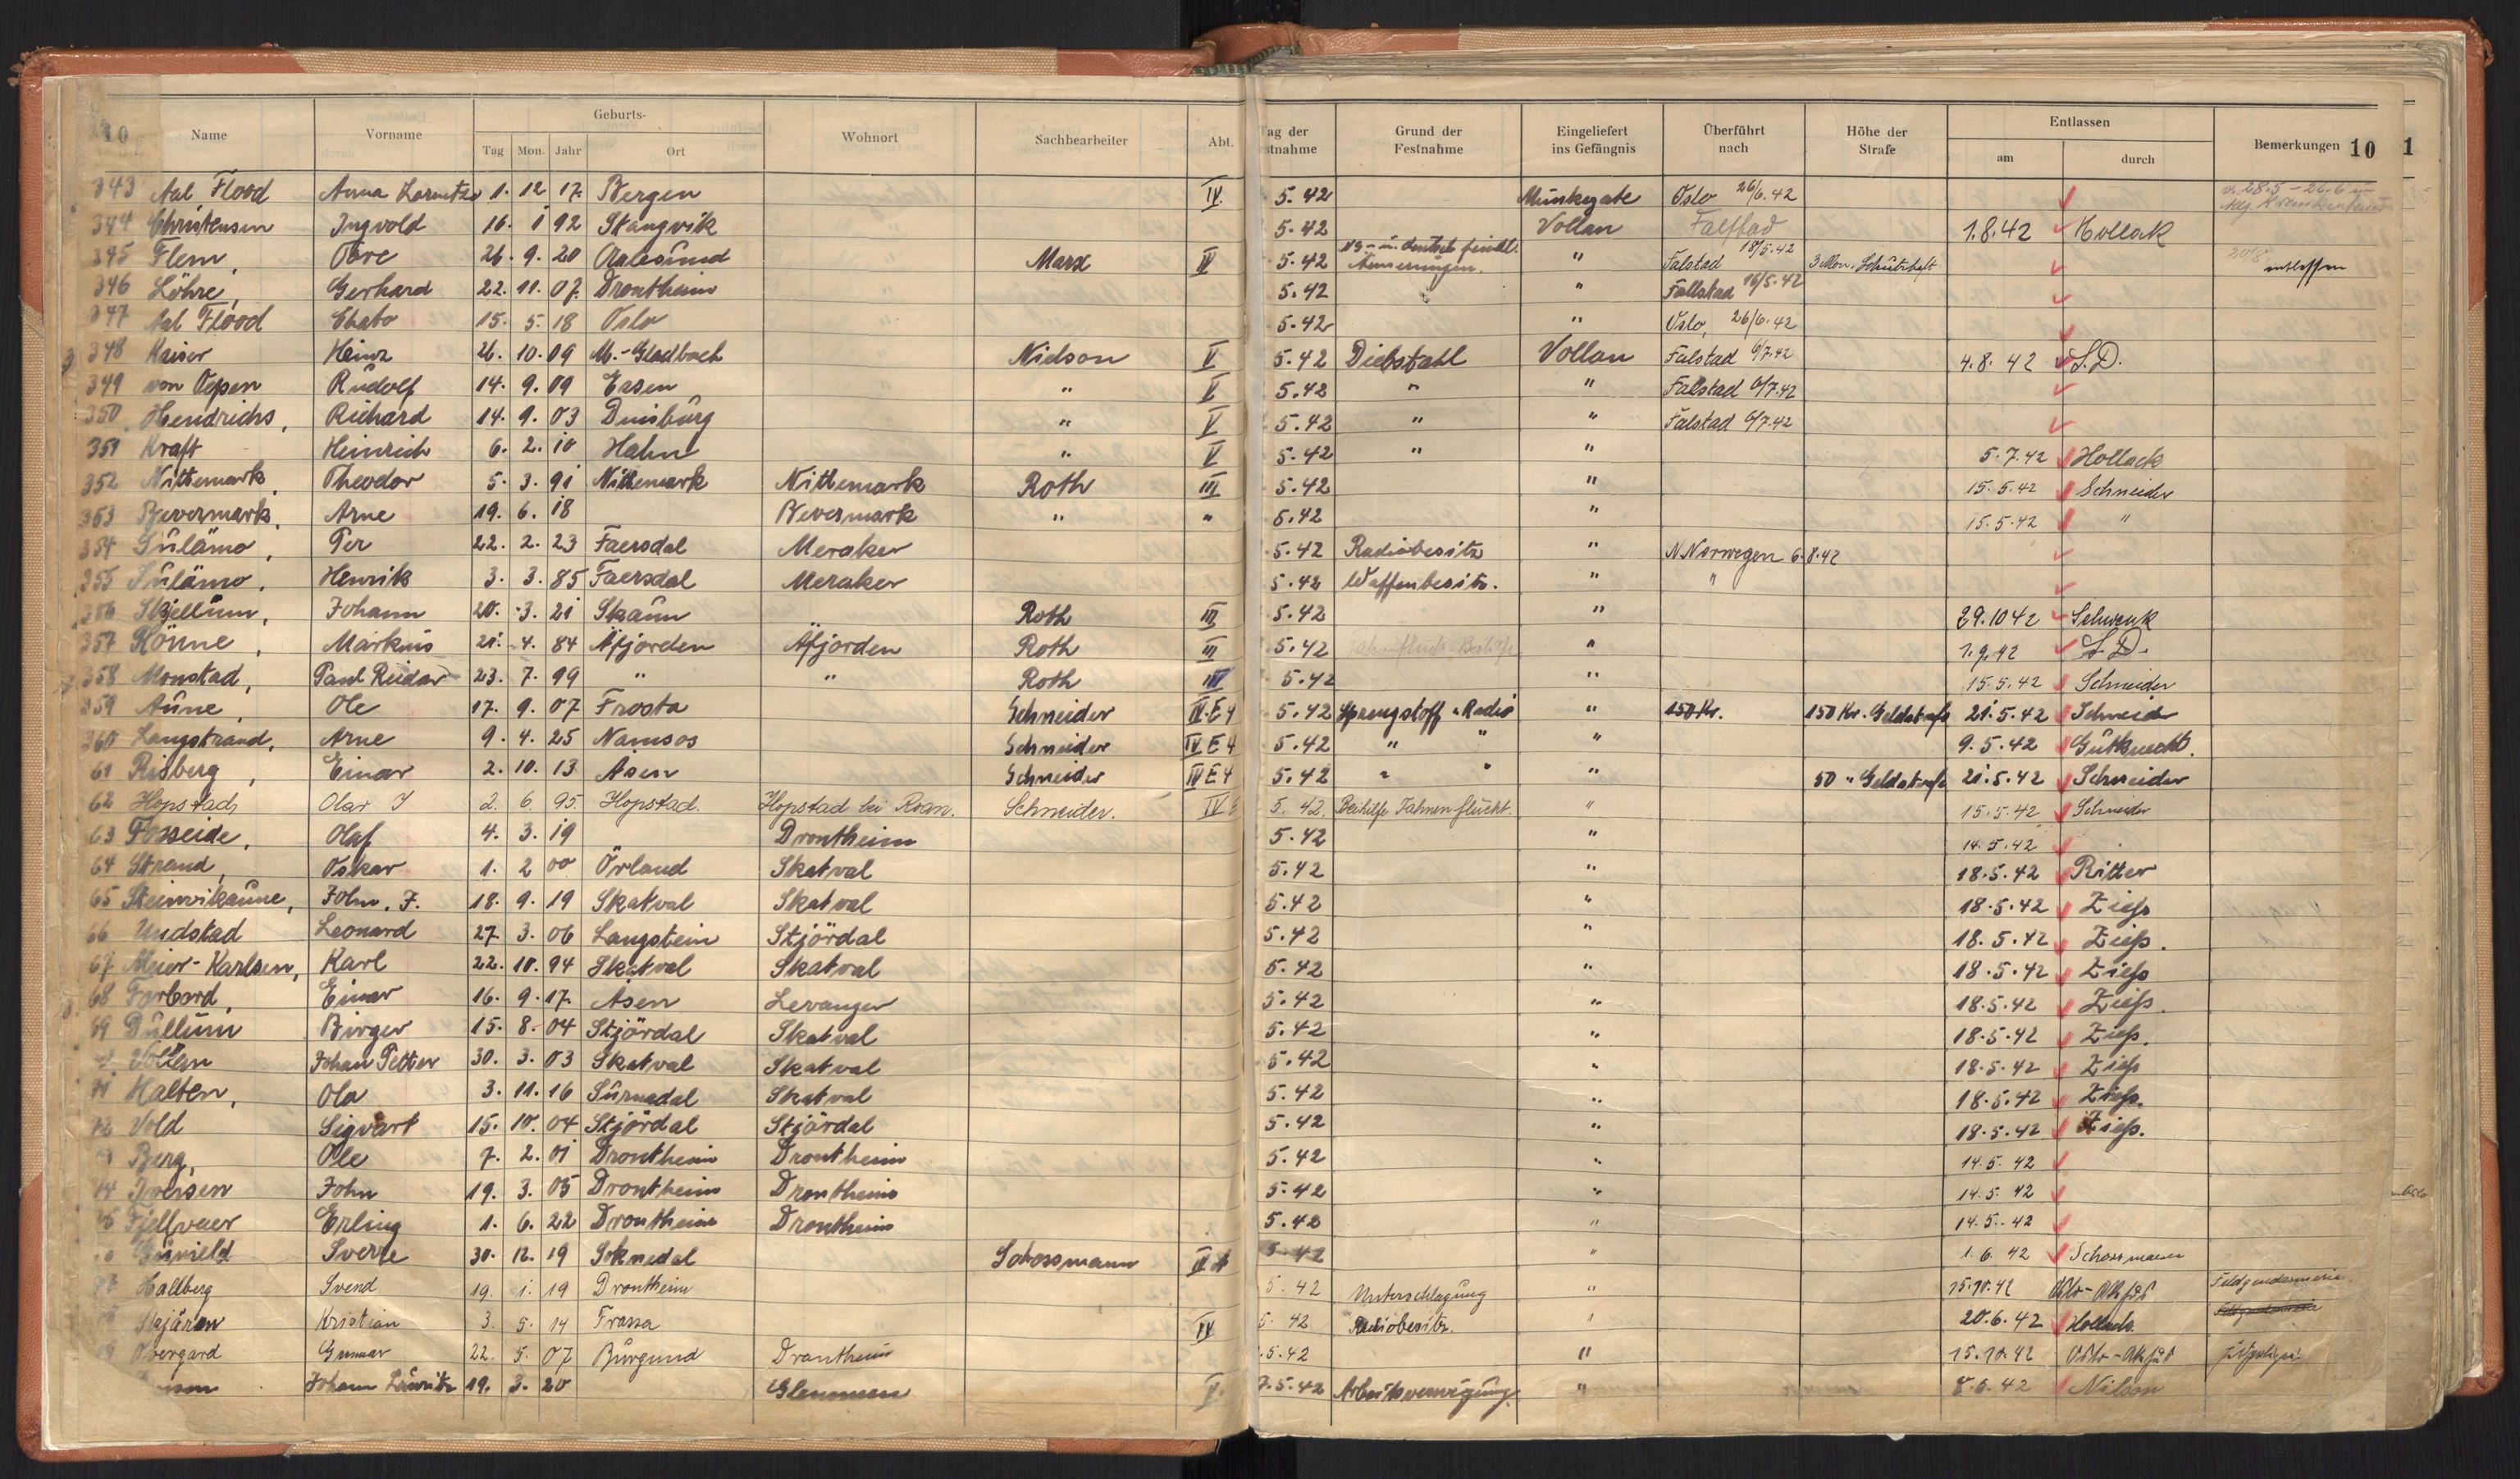 10 Name Vorname Geburts- Wohnort Sachbearbeiter Abt. Tag der Festnahme Grund der Festnahme Eingeliefert ins Gefängnis Überführt nach Höhe der Strafe Entlassen Bemerkungen 10 1
Tag Mon. Jahr Ort am durch
343 Aal Flood Anna 1. 12 17. Bergen IV. 5.42 Munkegate Oslo 26/6.42 v. 28.5 - 26.6 im
344 Christensen Ingvold 16. 1 92 Stangvik 5.42 Vollan Falstad 1.8.42 Hollack
345 Flem, Tore 26. 9. 20 Aalesund Marx IV 5.42 NS- u. deutsch feindl. Äusserungen. " Falstad 18/5.42 3 Mon. Schutzhaft 20/8 entlassen
346 Löhre, Gerhard 22. 11. 07. Drontheim 5.42 " Fallstad 16/5.42
347 Aal Flood Chato 15. 5. 18 Oslo 5.42 " Oslo, 26/6.42
348 Kaiser Heinz 26. 10. 09 M.-Gladbach Nielson V 5.42 Diebstahl Vollan Falstad 6/7.42 4.8.42 S.D.
349 von Oepen Rudolf 14. 9. 09 Essen " V 5.42 " " Falstad 6/7.42
350 Hendrichs, Richard 14. 9. 03 Duisburg " V 5.42 " " Falstad 6/7.42
351 Kraft Heinrich 6. 2. 10 Hahn " V 5.42 " " 5.7.42 Hollack
352 Nittemark, Theodor 5. 3. 91 Nittemark Nittemark Roth III 5.42 " 15.5.42 Schneider
353 Bevermark, Arne 19. 6. 18 Bevermark " " 5.42 " 15.5.42 "
354 Sulämo, Per 22. 2. 23 Faersdal Meraker 5.42 Radiobesitz " N.Norwegen 6.8.42
355 Sulämo, Henrik 3. 3. 85 Faersdal Meraker 5.42 Waffenbesitz. " "
356 Skjellum, Johann 20. 3. 21 Skaun Roth III 5.42 " 29.10 42 Schwenk
357 Rönne, Markus 21. 4. 84 Åfjorden Åfjorden Roth III 5.42 " 1.9.42 S.D.
358 Monstad, Paul Reidar 23. 7. 99 " " Roth III 5.42 " 15.5.42 Schneider
359 Aune, Ole 17. 9. 07 Frosta Schneider IV.E4 5.42 Sprengstoff u Radio " 150 Kr. 150 Kr. Geldstrafe 21.5.42 Schneider
360 Langstrand, Arne 9. 4. 25 Namsos Schneider IV E4 5.42 " " " 9.5.42 Gutknecht.
61 Risberg, Einar 2. 10. 13 Åsen Schneider IV E4 5.42 " " " 50 " Geldstrafe 21.5.42 Schneider
62 Hopstad, Olav J 2. 6. 95. Hopstad. Hopstad bei Roan. Schneider. IV E 5.42. Beihilfe Fahnenflucht. " 15.5.42 Schneider
63 Fosseide, Olaf 4. 3. 19 Drontheim 5.42 " 14.5.42
64 Strand, Oskar 1. 2 00 Örland Skatval 5.42 " 18.5.42 Ritter
65 Steinvikaune, John. J. 18. 9. 19 Skatval Skatval 5.42 " 18.5.42 Ziess
66 Undstad Leonard 27. 3. 06 Langstein Stjördal 5.42 " 18.5.42 Ziess.
67 Meier-Karlsen, Karl 22. 10. 94 Skatval Skatval 5.42 " 18.5.42 Ziess
68 Forbord, Einar 16. 9. 17. Åsen Levanger 5.42 " 18.5.42 Ziess.
69 Dullum Birger 15. 8. 04 Stjördal Skatval 5.42 " 18.5.42 Ziess.
Vollan Johan Petter 30. 3. 03 Skatval Skatval 5.42 " 18.5.42 Ziess
71 Halten, Ola 3. 11. 16 Surnadal Skatval 5.42 " 18.5.42 Ziess.
72 Vold Sigvart 15. 10. 04 Stjördal Stjördal 5.42 " 18.5.42 Ziess.
Berg, Ole 7. 2. 01 Drontheim Drontheim 5.42 " 14.5.42
74 Iversen John 19. 3. 05 Drontheim Drontheim 5.42 " 14.5.42
75 Fjellvaer Erling 1. 6. 22 Drontheim Drontheim 5.42 " 14.5.42
Sverre 30. 12. 19 Soknedal Schossmann IV A 5.42 " 1.6.42 Schossmann
77 Hallberg Svend 19. 1. 19 Drontheim 5.42 Unterschlagung " 15.10.42 Feldgendarmerie
Kristian 3. 5. 14 Frassa IV 5.42 Radiobesitz. " 20.6.42 Hollack
Övergard Gunnar 22. 5. 07 Burgund Drontheim 5.42 " 15.10.42
Johann Lauritz 19. 3. 20 Glemmen V. 7.5.42 Arbeitsverweigerung. " 8.6.42 Nilson